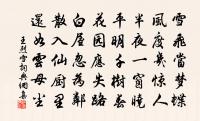 雪飛當夢蝶
風度幾驚人
半夜一窗曉
平明千樹春
花園應失路
白屋忽為鄰
散入仙厨里
還如雲母塵
王烈雪詞典網集